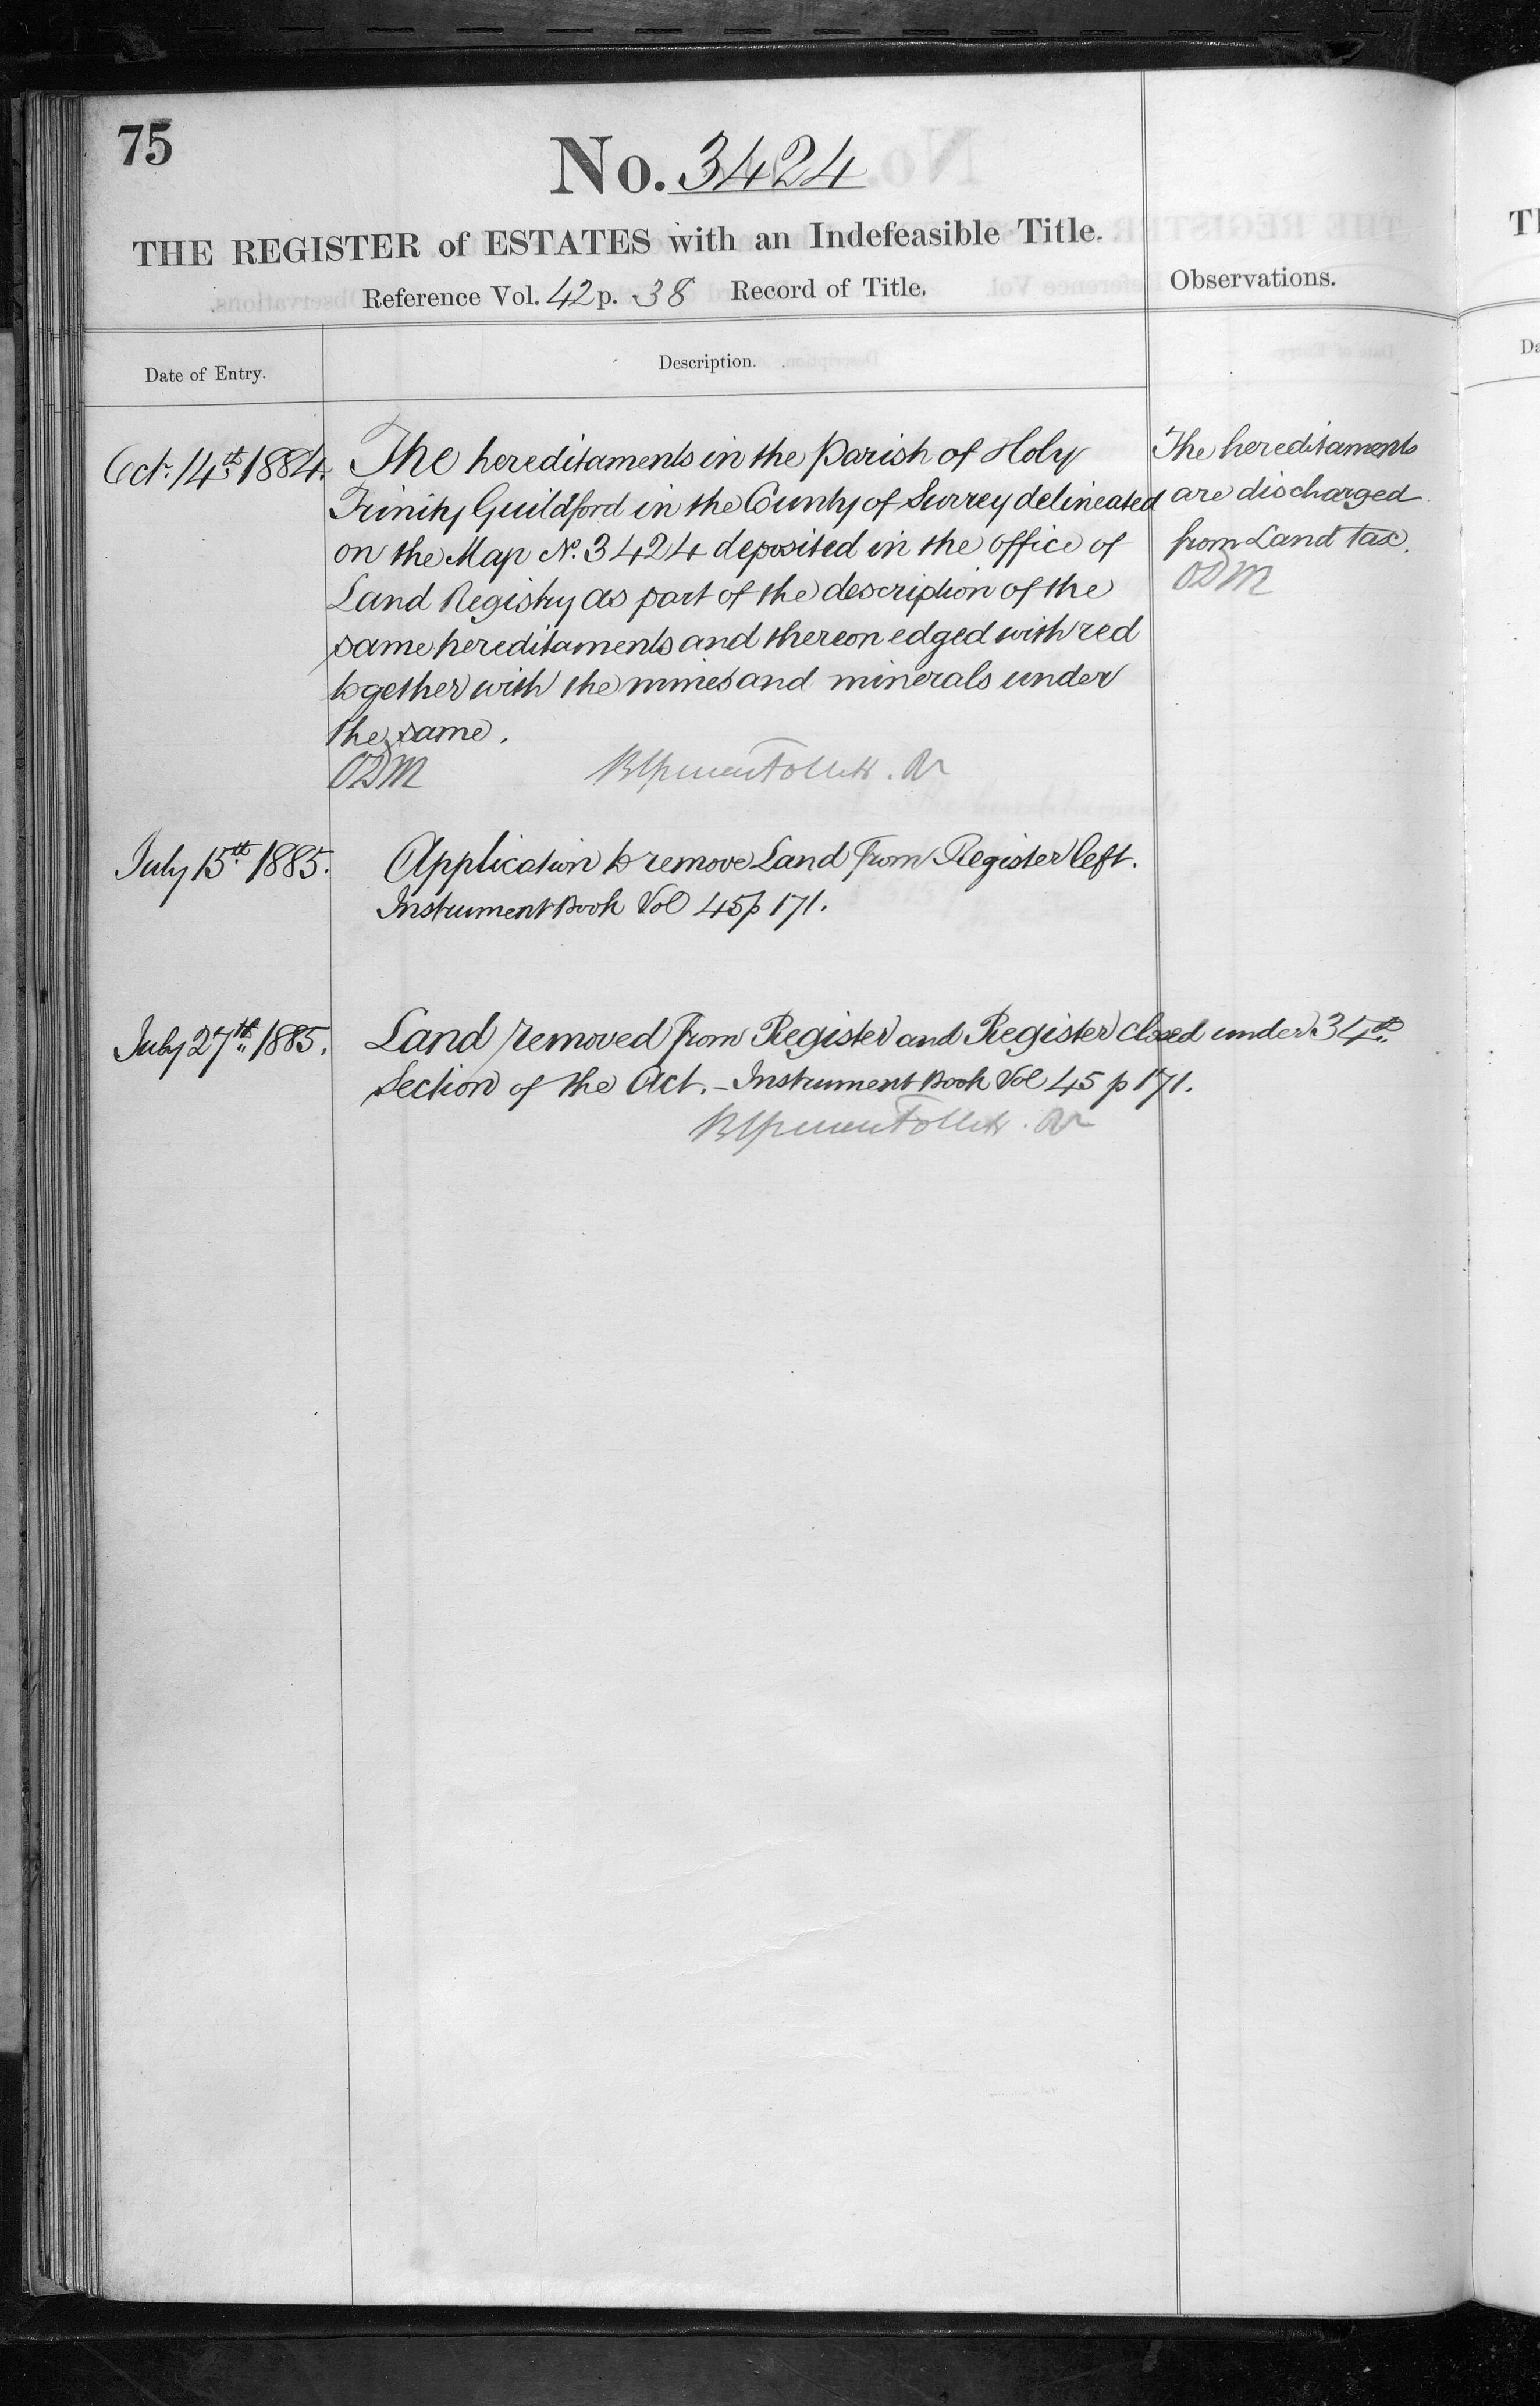 75
No. 3424
THE REGISTER of ESTATES with an Indefeasible Title.
Reference Vol. 42 p. 38 Record of Title.
Observations.
Date of Entry.
Description.
Oct. 14th 1884.
The hereditaments in the Parish of Holy
Trinity Guildford in the County of Surrey delineated
on the Map No. 3424 deposited in the office of
Land Registry as part of the description of the
same hereditaments and thereon edged with red
together with the mines and minerals under
the same.
ODM
The hereditaments
are discharged
from Land Tax.
ODM
July 15th 1885.
Application to remove Land from Register left.
Instrument Book Vol 45 p 171.
July 27th 1885.
Land removed from Register and Register closed under 34th
Section of the Act. - Instrument Book Vol 45 p 171.